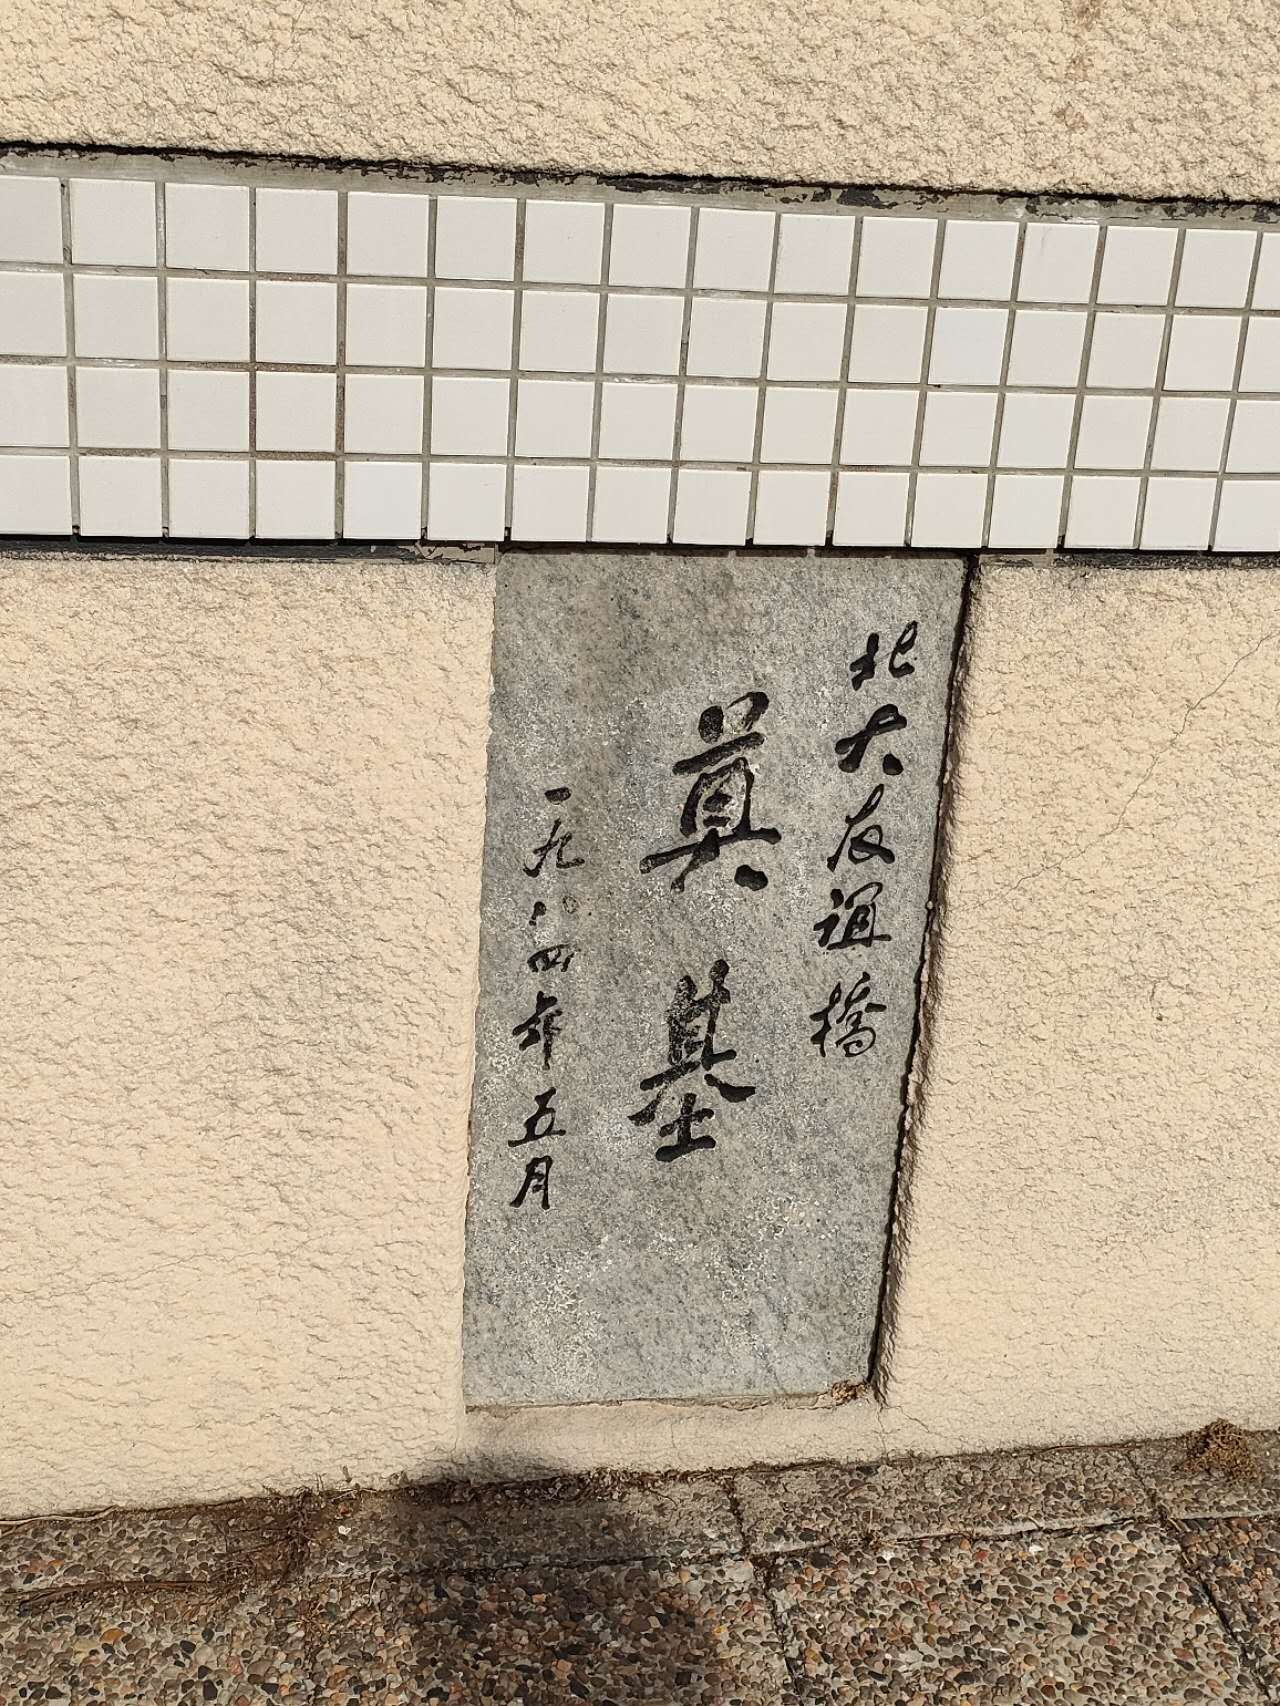 北大友誼橋
奠基
一九八四年五月